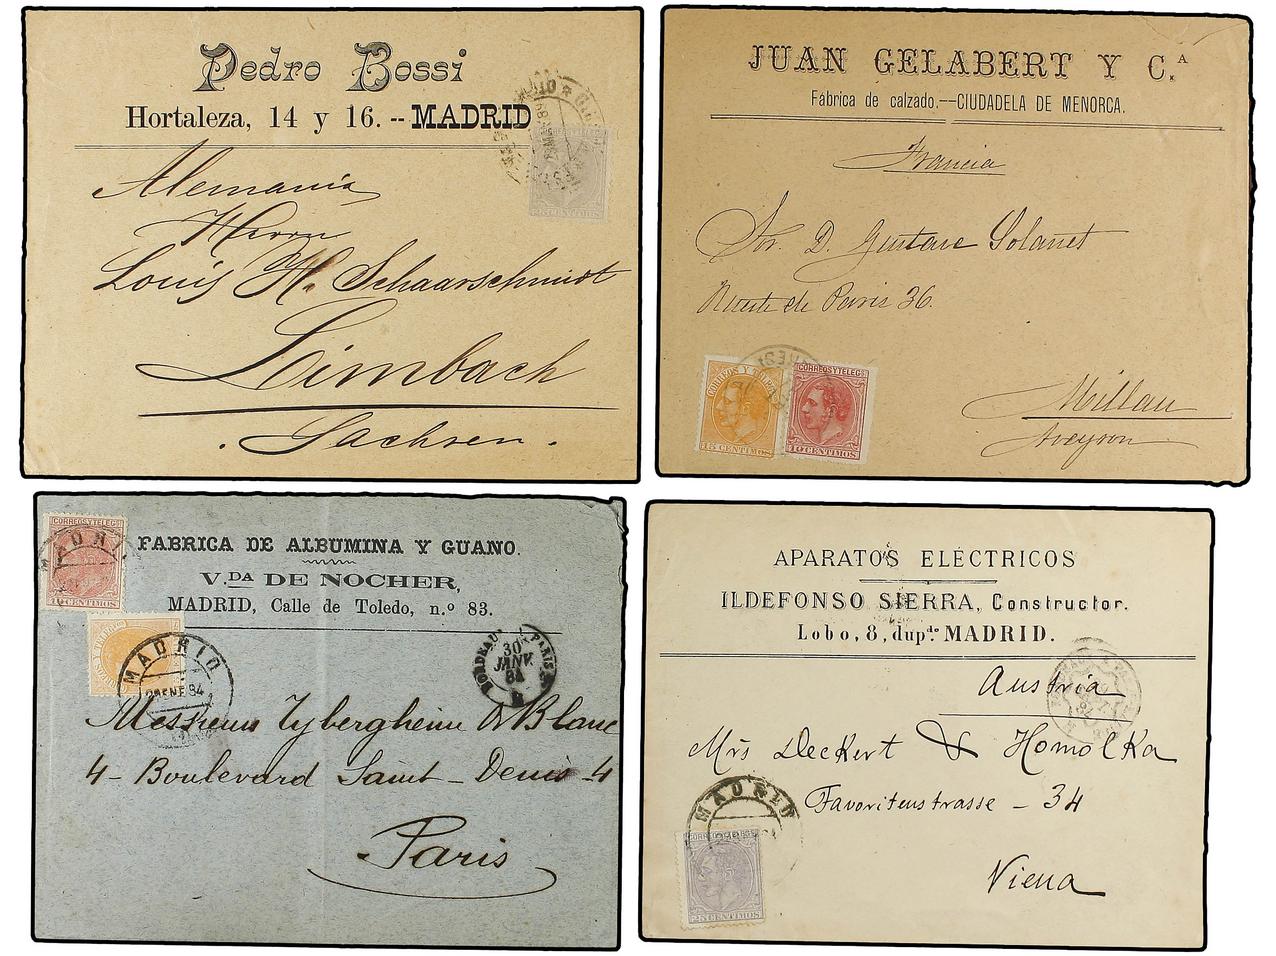 Pedro Bossi
Hortaleza, 14 y 16. -- MADRID
Alemania
Herrn
Louis H. Schaarschmidt
Limbach
. Sachsen .
25 CENTIMOS
JUAN GELABERT Y C.A
Fábrica de calzado.--CIUDADELA DE MENORCA.
Francia
Sor. D. Gustave Solanet
Route de Paris 36.
CORREOS Y TELEGS
15 CENTIMOS
CORREOS Y TELEGS
10 CENTIMOS
Millau
Aveyron
CORREOS Y TELEGS
10 CENTIMOS
MADRID
FABRICA DE ALBUMINA Y GUANO.
V.DA DE NOCHER,
MADRID, Calle de Toledo, n.o 83.
MADRID
ENE 84
BORDEAUX PARIS
30
JANV
84
Messieurs Tyberghein & Blanc
4 - Boulevard Saint - Denis - 4
Paris
APARATOS ELÉCTRICOS
ILDEFONSO SIERRA, Constructor.
Lobo, 8, dup.do MADRID.
Austria
Mrs Deckert & Homolka
Favoritenstrasse - 34
Viena
MADRID
CORREOS Y TELEGS
25 CENTIMOS